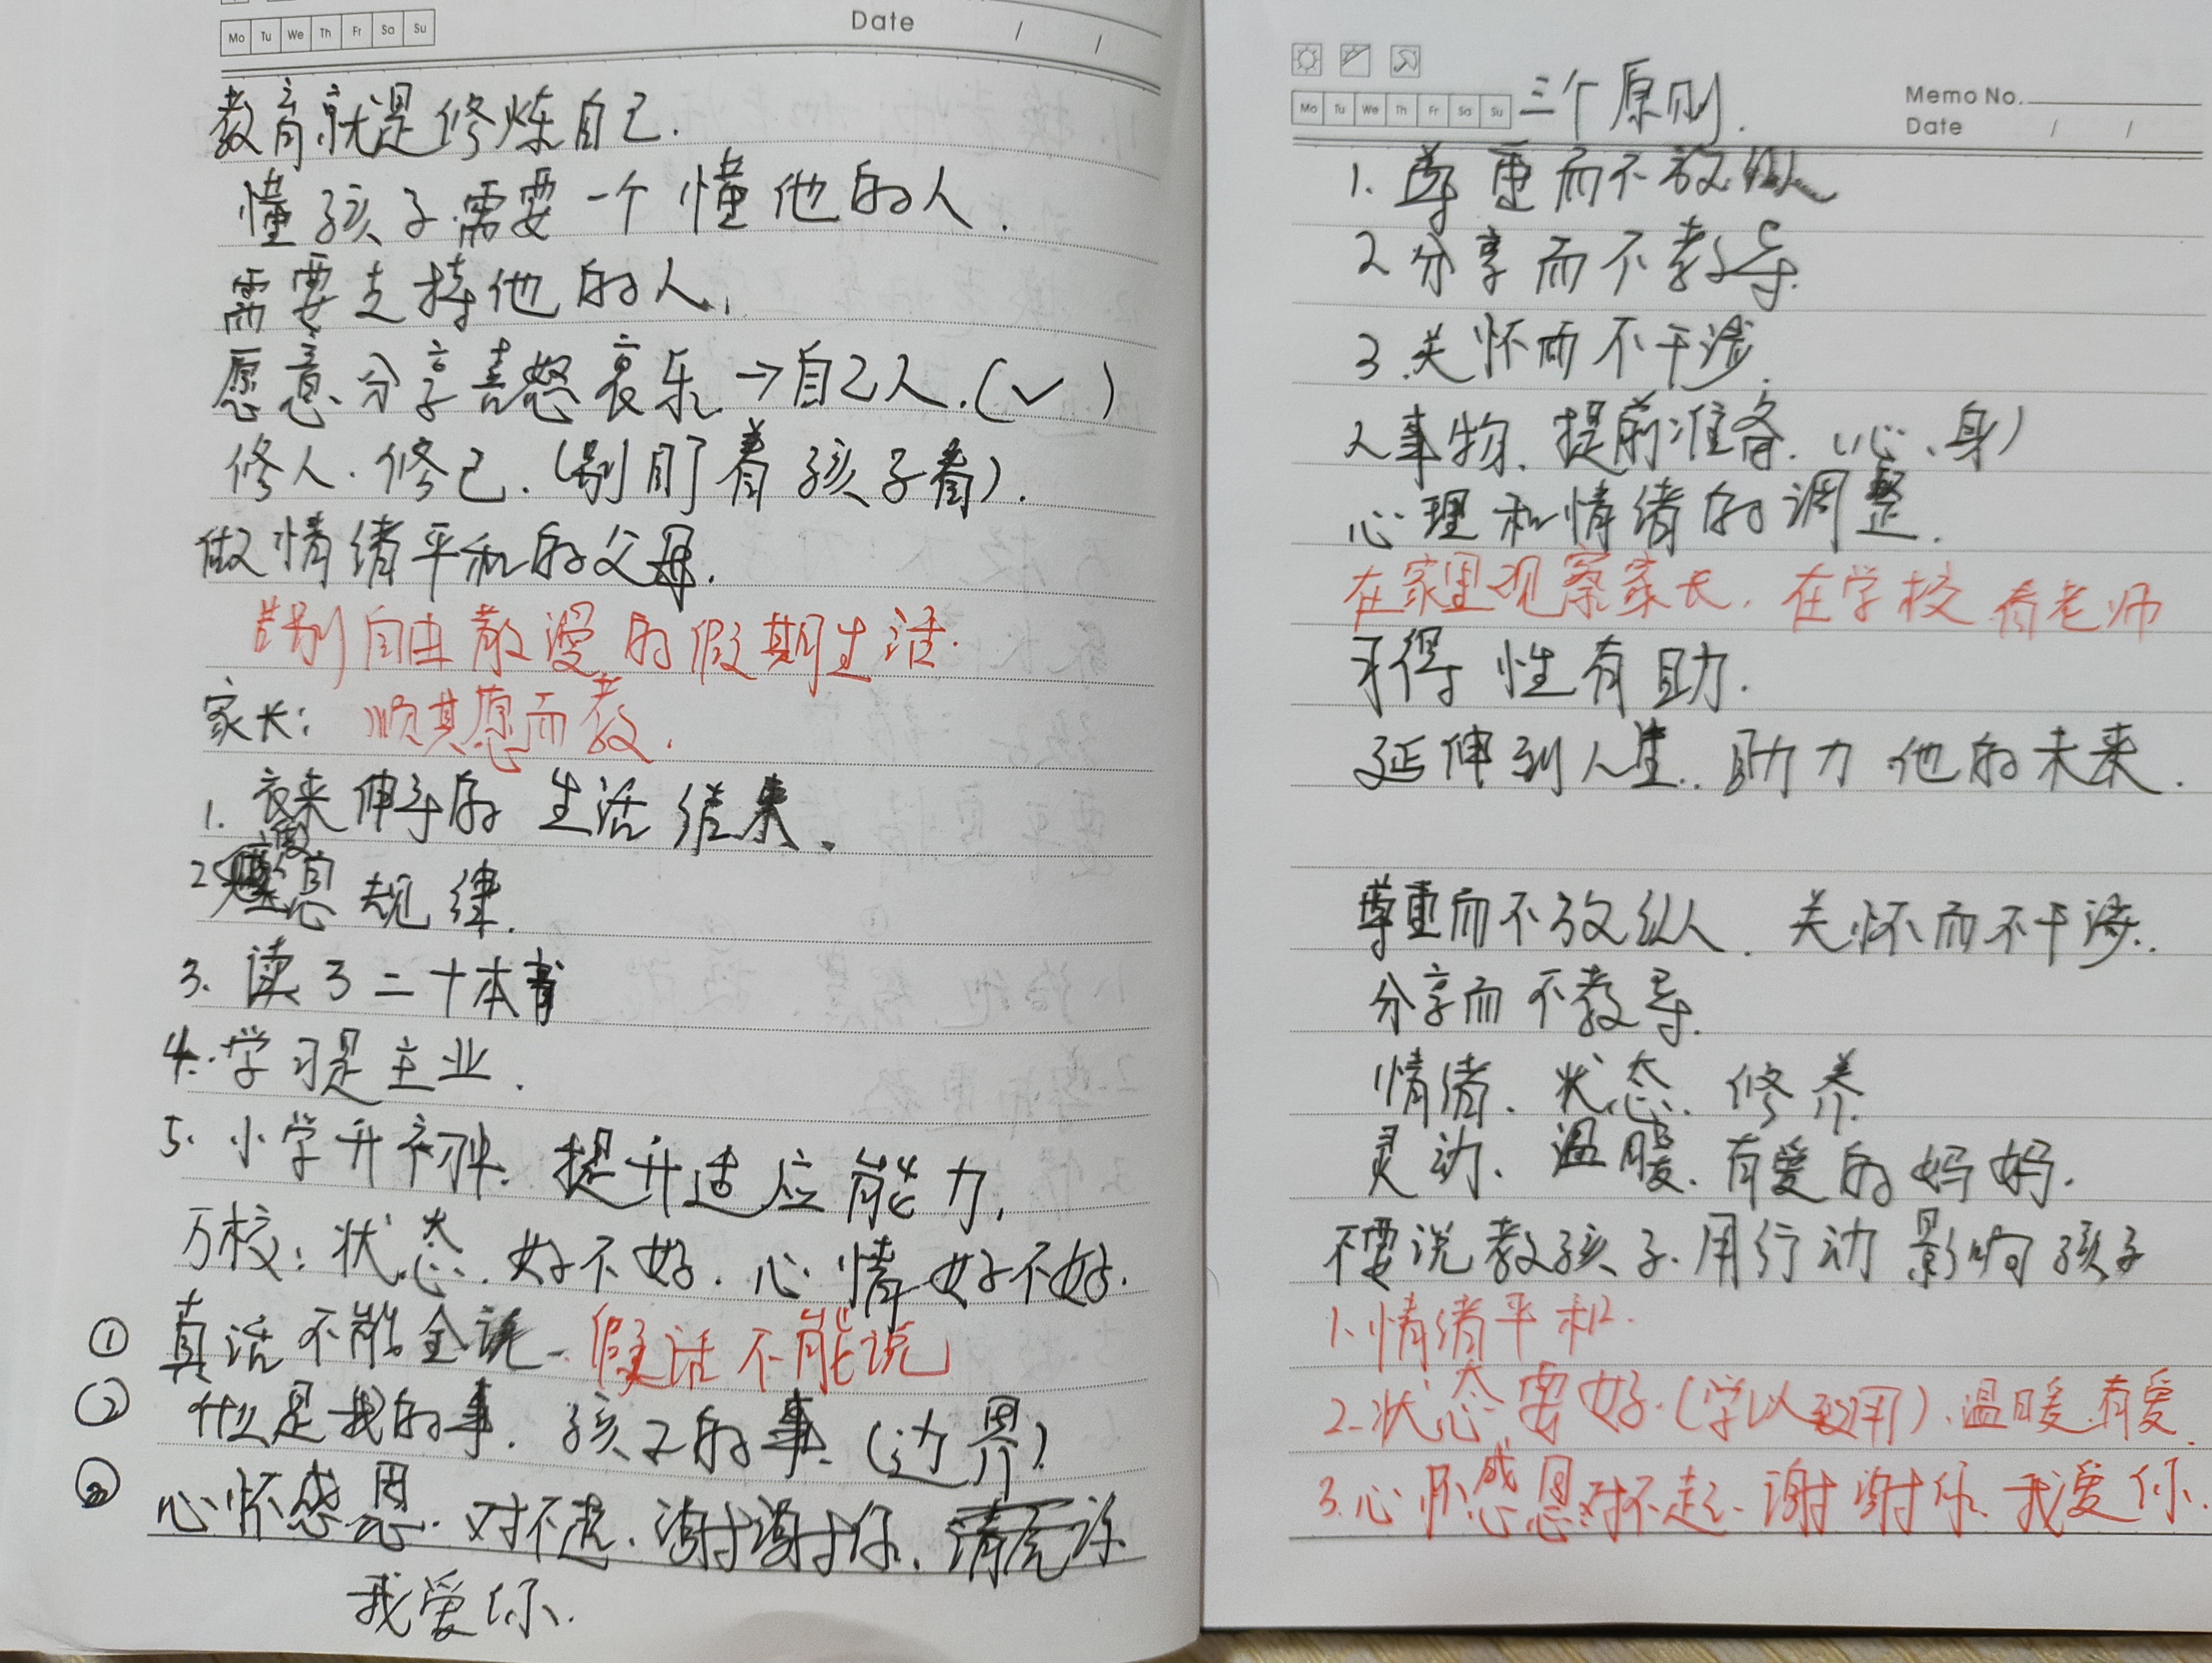 Mo Tu We Th Fr Sa Su
Date / /
教育就是修炼自己.
懂孩子需要一个懂他的人.
需要支持他的人.
愿意分享喜怒哀乐→自己人.(✓)
修人.修己.(别盯着孩子看).
做情绪平和的父母.
告别自由散漫的假期生活.
家长: 顺其愿而教.
1. 衣来伸手的生活结束.
2 息规律.
3. 读了二十本书
4. 学习是主业.
5. 小学升初中. 提升适应能力.
万校: 状态.好不好.心情好不好.
① 真话不能全说-假话不能说
② 什么是我的事.孩子的事.(边界)
③ 心怀感恩.对不起.谢谢你.请原谅
我爱你.
三个原则.
Mo Tu We Th Fr Sa Su
Memo No.
Date / /
1. 尊重而不放纵
2 分享而不教导.
3.关怀而不干涉.
人事物.提前准备.(心、身)
心理和情绪的调整.
在家里观察家长.在学校看老师
习得性有助.
延伸到人生.助力他的未来.
尊重而不放纵.关怀而不干涉.
分享而不教导.
情绪.状态.修养
灵动、温暖.有爱的妈妈.
不要说教孩子.用行动影响孩子
1.情绪平和.
2.状态要好.(学以致用).温暖.有爱.
3.心怀感恩对不起.谢谢你.我爱你.